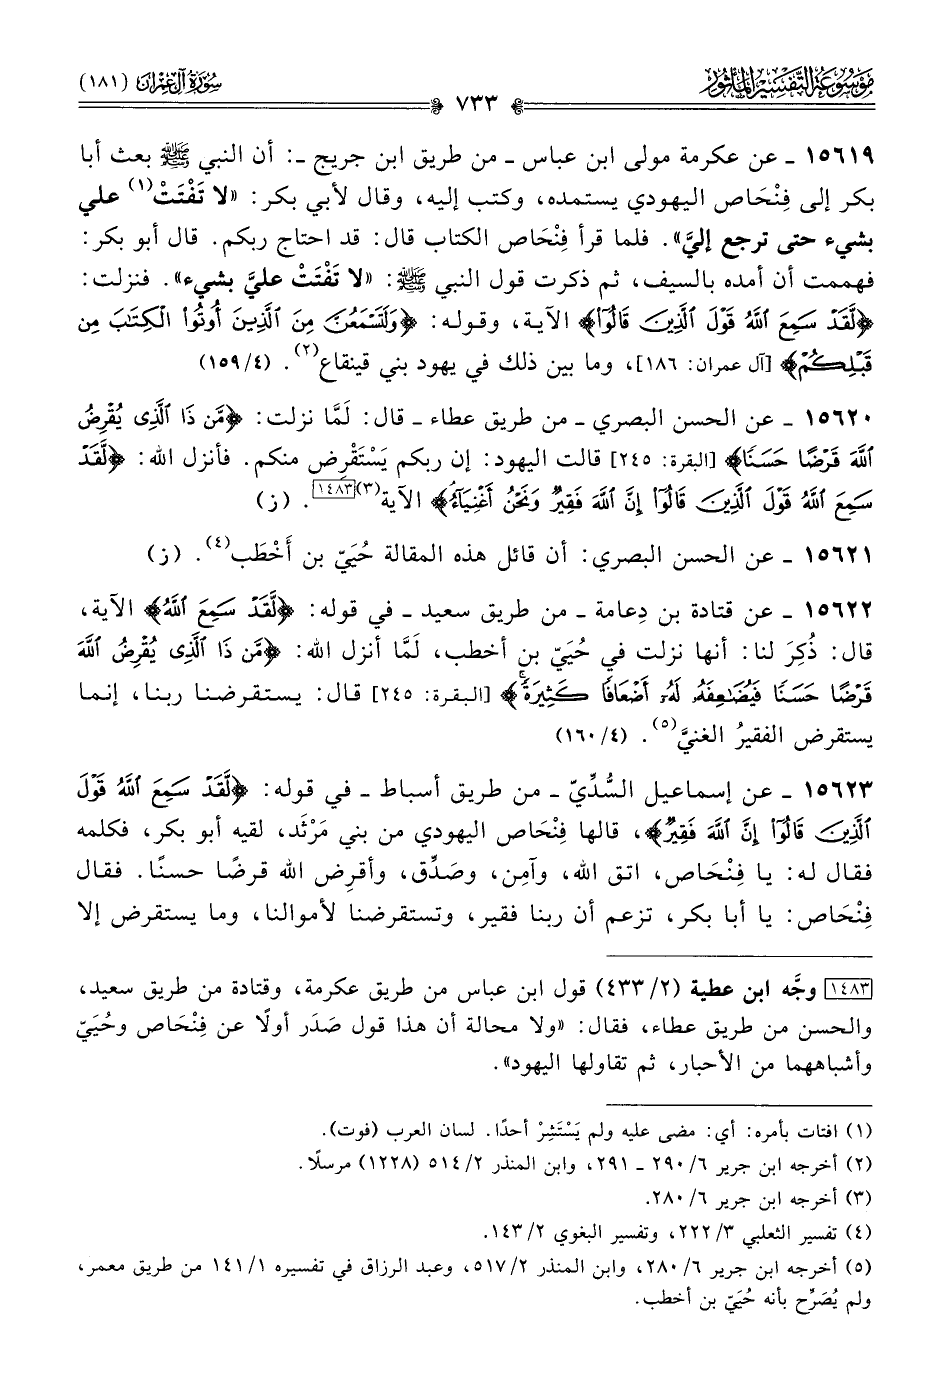 موسوعة التفسير المأثور
سورة آل عمران (١٨١)
٧٣٣
١٥٦١٩ ـ عن عكرمة مولى ابن عباس ـ من طريق ابن جريج ـ: أن النبي ﷺ بعث أبا
بكر إلى فِنْحَاص اليهودي يستمده، وكتب إليه، وقال لأبي بكر: «لا تَفْتَتْ(١) علي
بشيء حتى ترجع إليَّ». فلما قرأ فِنْحَاص الكتاب قال: قد احتاج ربكم. قال أبو بكر:
فهممت أن أمده بالسيف، ثم ذكرت قول النبي ﷺ: «لا تَفْتَتْ عليَّ بشيء». فنزلت:
﴿لَّقَدْ سَمِعَ ٱللَّهُ قَوْلَ ٱلَّذِينَ قَالُوٓا۟﴾ الآية، وقوله: ﴿وَلَتَسْمَعُنَّ مِنَ ٱلَّذِينَ أُوتُوا۟ ٱلْكِتَٰبَ مِن
قَبْلِكُمْ﴾ [آل عمران: ١٨٦]، وما بين ذلك في يهود بني قينقاع(٢). (١٥٩/٤)
١٥٦٢٠ ـ عن الحسن البصري ـ من طريق عطاء ـ قال: لَمَّا نزلت: ﴿مَّن ذَا ٱلَّذِى يُقْرِضُ
ٱللَّهَ قَرْضًا حَسَنًا﴾ [البقرة: ٢٤٥] قالت اليهود: إن ربكم يَسْتَقْرِض منكم. فأنزل الله: ﴿لَّقَدْ
سَمِعَ ٱللَّهُ قَوْلَ ٱلَّذِينَ قَالُوٓا۟ إِنَّ ٱللَّهَ فَقِيرٌ وَنَحْنُ أَغْنِيَآءُ﴾ الآية(٣)[١٤٨٣]. (ز)
١٥٦٢١ ـ عن الحسن البصري: أن قائل هذه المقالة حُيَيّ بن أَخْطَب(٤). (ز)
١٥٦٢٢ ـ عن قتادة بن دِعامة ـ من طريق سعيد ـ في قوله: ﴿لَّقَدْ سَمِعَ ٱللَّهُ﴾ الآية،
قال: ذُكِرَ لنا: أنها نزلت في حُيَيّ بن أخطب، لَمَّا أنزل الله: ﴿مَّن ذَا ٱلَّذِى يُقْرِضُ ٱللَّهَ
قَرْضًا حَسَنًا فَيُضَٰعِفَهُۥ لَهُۥٓ أَضْعَافًا كَثِيرَةً﴾ [البقرة: ٢٤٥] قال: يستقرضنا ربنا، إنما
يستقرض الفقيرُ الغنيَّ(٥). (١٦٠/٤)
١٥٦٢٣ ـ عن إسماعيل السُّدِّيّ ـ من طريق أسباط ـ في قوله: ﴿لَّقَدْ سَمِعَ ٱللَّهُ قَوْلَ
ٱلَّذِينَ قَالُوٓا۟ إِنَّ ٱللَّهَ فَقِيرٌ﴾، قالها فِنْحَاص اليهودي من بني مَرْثَد، لقيه أبو بكر، فكلمه
فقال له: يا فِنْحَاص، اتق الله، وآمِن، وصَدِّق، وأقرِض الله قرضًا حسنًا. فقال
فِنْحَاص: يا أبا بكر، تزعم أن ربنا فقير، وتستقرضنا لأموالنا، وما يستقرض إلا
[١٤٨٣] وجَّه ابن عطية (٤٣٣/٢) قول ابن عباس من طريق عكرمة، وقتادة من طريق سعيد،
والحسن من طريق عطاء، فقال: «ولا محالة أن هذا قول صَدَر أولًا عن فِنْحَاص وحُيَيّ
وأشباههما من الأحبار، ثم تقاولها اليهود».
(١) افتات بأمره: أي: مضى عليه ولم يَسْتَشِرْ أحدًا. لسان العرب (فوت).
(٢) أخرجه ابن جرير ٦/ ٢٩٠ ـ ٢٩١، وابن المنذر ٢/ ٥١٤ (١٢٢٨) مرسلًا.
(٣) أخرجه ابن جرير ٦/ ٢٨٠.
(٤) تفسير الثعلبي ٣/ ٢٢٢، وتفسير البغوي ٢/ ١٤٣.
(٥) أخرجه ابن جرير ٦/ ٢٨٠، وابن المنذر ٢/ ٥١٧، وعبد الرزاق في تفسيره ١/ ١٤١ من طريق معمر،
ولم يُصَرِّح بأنه حُيَيّ بن أخطب.